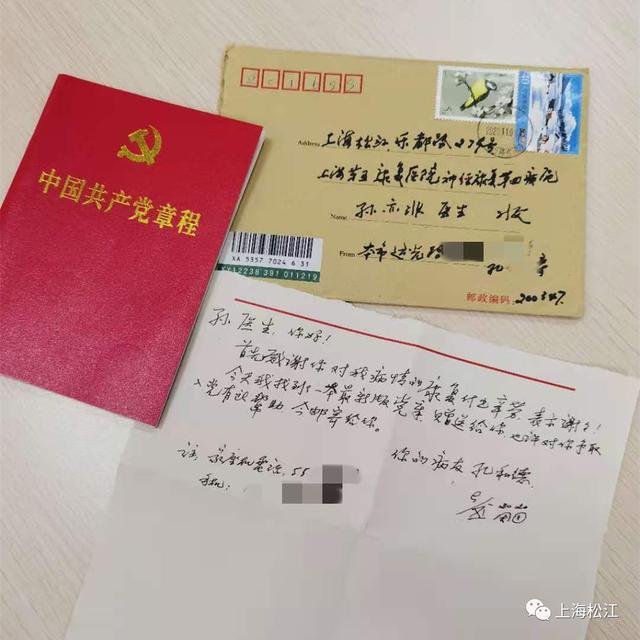 中国共产党章程
Address
上海松江乐都路874号
上海第三康复医院神经康复第四病区
Name
孙亦雅 医生 收
From
本市延长路
孔
邮政编码:
XA 5357 7024 6 31
孙医生,你好!
首先感谢你对我病情的康复付出辛劳,表示谢谢!
今天我找到一本最新版党章赠送给你,也许对你争取
入党有所帮助,今邮寄给你。
你的病友 孔和德
注 家座机电话:55
手机:
上海松江